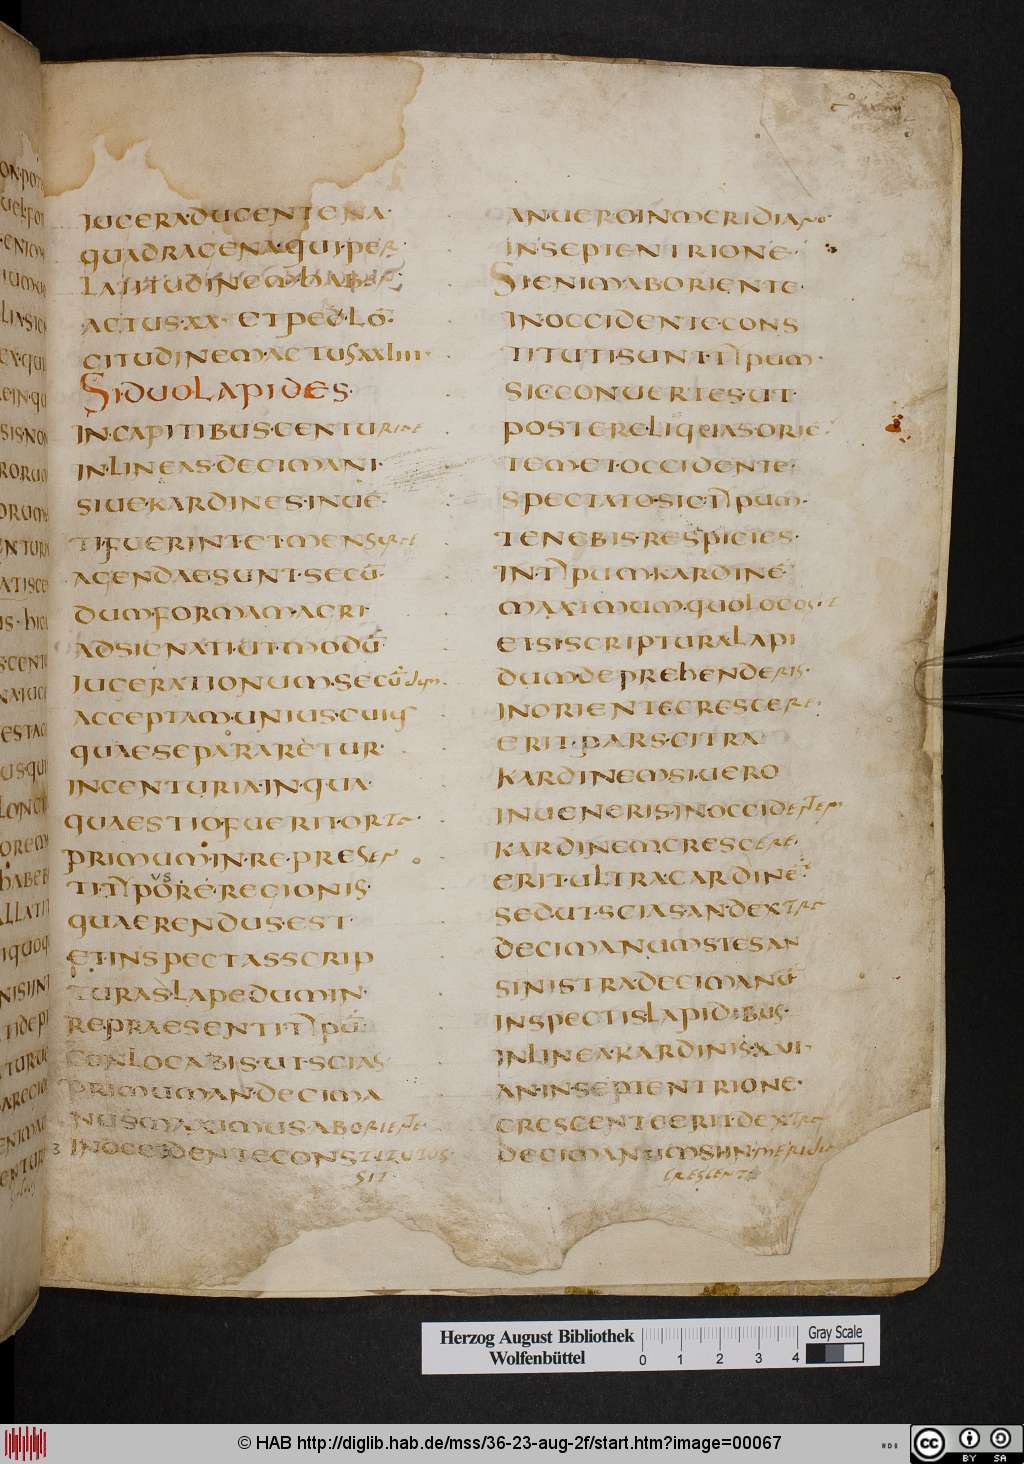 IUGERA·DUCENTENA·
QUADRAGENA·QUI·PER
LATITUDINEM·HABUE
ACTUS·XX· ET PED·LŌ·
GITUDINEM·ACTUS XXIIII·
SI·DUO LAPIDES·
IN·CAPITIBUS·CENTURIAE
IN·LINEAS·DECIMANI·
SIUE·KARDINES·INUĒ·
TI·FUERINT·ET·MENSURAE
AGENDAE SUNT·SECŪ·
DUM·FORMAM·AGRI·
ADSIGNATI·UT·MODŪ·
IUGERATIONUM·SECŪdum·
ACCEPTAM·UNIUS·CUIUS
QUAE SEPARARETUR·
IN CENTURIA·IN·QUA·
QUAESTIO·FUERIT·ORTA·
PRIMUM·IN·RE·PRESEN
TI·TĒPORE·REGIONIS·
QUAERENDUS·EST·
ET·INSPECTAS SCRIP
TURAS·LAPEDUM IN·
RE·PRAESENTI TĒPŪ
CONLOCABIS·UT·SCIAS
PRIMUM AN·DECIMA
NUS MAXIMUS·AB ORIENTE
IN OCCIDENTE CONSTITUTUS
SIT·
AN·UERO IN MERIDIANO·
IN SEPTENTRIONE·
SI ENIM AB ORIENTE·
IN·OCCIDENTE·CONS
TITUTI SUNT·TĒPUM·
SIC CONUERTES·UT·
POSTERE·LIQUAS·ORIE
TEM·ET·OCCIDENTE·
SPECTATO·SIC·TĒPUM·
TENEBIS·RESPICIES·
IN·TĒPUM·KARDINĒ
MAXIMUM·QUO LOCO SIT
ET SI SCRIPTURA LAPI
DUM·DEPREHENDERIS·
IN ORIENTE CRESCERE·
ERIT·PARS·CITRA
KARDINEM SI·UERO
INUENERIS·IN OCCIDENTEM
KARDINEM CRESCERE·
ERIT·ULTRA·CARDINĒ·
SED UT·SCIAS AN·DEXTRA
DECIMANUM STES AN
SINISTRA DECIMANŪ
INSPECTIS LAPIDIBUS·
IN LINEA·KARDINIS·XVI·
AN·IN·SEPTENTRIONE·
CRESCENTE ERIT·DEXTRA
DECIMANUM SI IN·MERIDIE
CRESCENTE
Herzog August Bibliothek
Wolfenbüttel
0 1 2 3 4
Gray Scale
© HAB http://diglib.hab.de/mss/36-23-aug-2f/start.htm?image=00067
cc BY SA